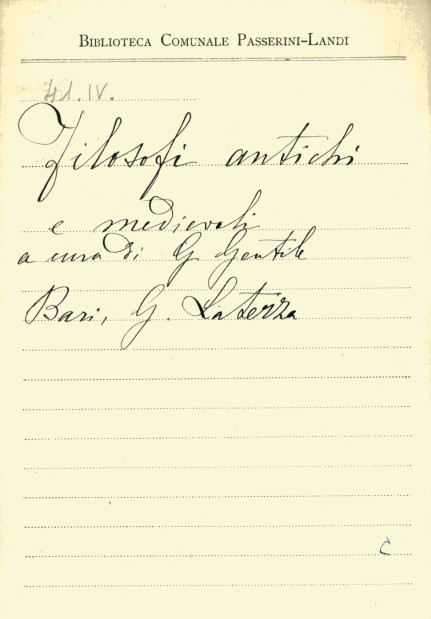 BIBLIOTECA COMUNALE PASSERINI-LANDI
41.IV.
Filosofi antichi
e medievali
a cura di G Gentile
Bari, G. Laterza
C